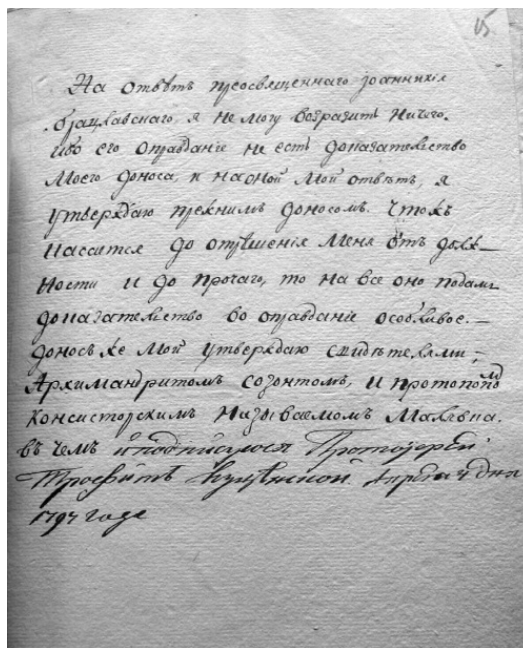 15
На ответъ преосвященнаго Iоанникiя
брацлавскаго, я не могу возразить ничего.
ибо его оправданiе не есть доказателство
моего доноса, и на оной мой ответъ, я
утверждаю прежнимъ доносомъ. Чтожъ
касается до отрешенiя меня отъ долж-
ности и до прочаго, то на все оно подамъ
доказателство во оправданiе особливое.-
доносъ же мой утверждаю свидетелями,
Архимандритомъ созонтомъ, и протопопомъ
консисторскимъ называемомъ
въ чемъ и подписуюся Протоiерей
Трофимъ
1797 года